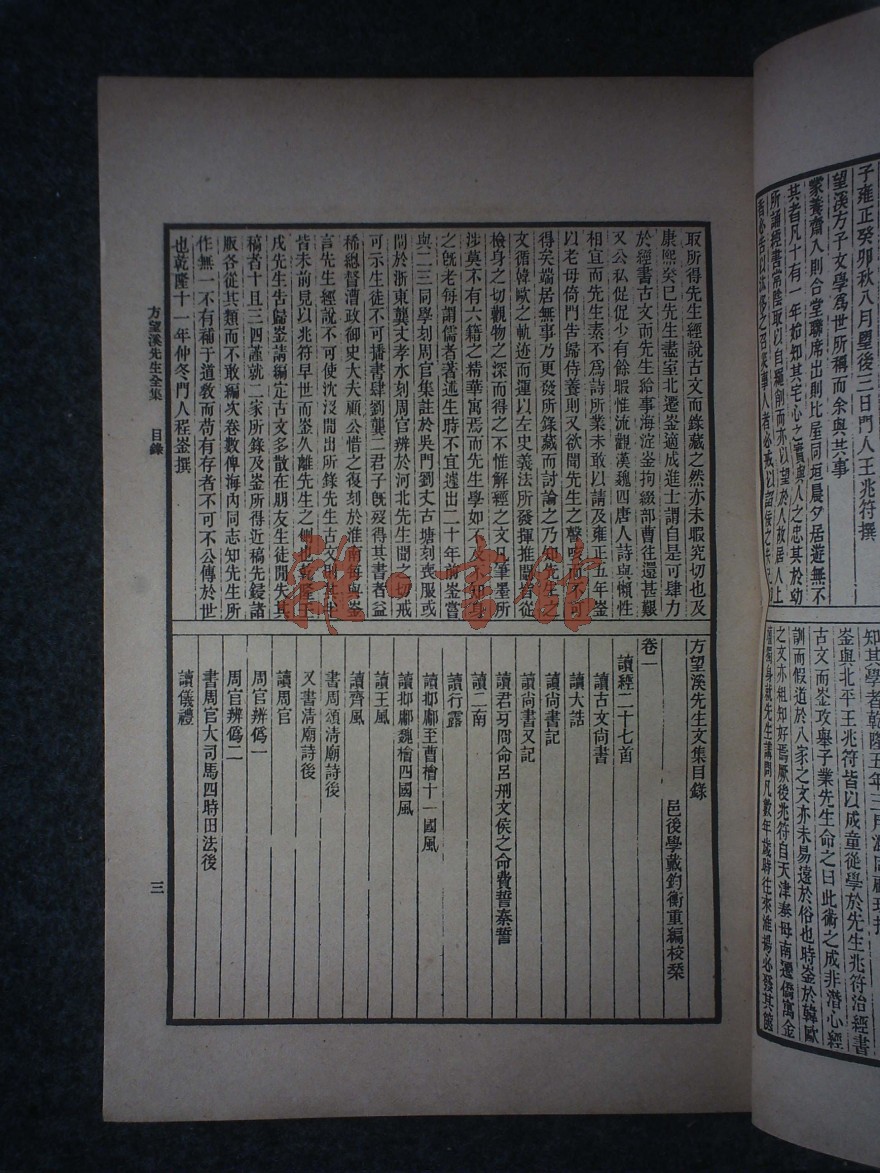 子雍正癸卯秋八月望後三日門人王兆符撰
望溪方子文學爲世所稱而余與共事
蒙養齋入則合堂聯席出則比屋同垣晨夕居遊無不
其者凡十有一年始知其宅心之實與人之忠其於幼
所誦經書常陰取以自繩削而亦以望於人故居人上
知其學者乾隆五年三月混同顧琮
崟與北平王兆符皆以成童從學於先生兆符治經書
古文而崟攻舉子業先生命之曰此術之成非潛心經
訓而假道於八家之文亦未易遠於俗也時崟於韓歐
之文亦粗知好焉厥後兆符自天津奉母南遷僑寓金
獨身就先生講問凡數年歲時往來淮揚必發其篋
取所得先生經說古文而錄藏之然亦未暇究切也及
康熙癸巳先生盡室北遷崟適成進士謂自是可肆力
於經書古文而先生給事海淀崟拘綴部曹往還甚艱
又公私促促少有餘暇惟流觀漢魏四唐人詩與懶性
相宜而先生素不爲詩所業未敢以請及雍正五年崟
以老母倚門告歸侍養則又欲聞先生之聲咳而不可
得矣端居無事乃更發所錄藏而討論之乃知先生之
文循韓歐之軌迹而運以左史義法所發揮推闡皆從
檢身之切觀物之深而得之不惟解經之文凡筆墨所
涉莫不有六籍之精華寓焉而先生學如不及未知身
之旣老每謂儒者著述生時不宜遽出二十年前崟嘗
與二三同學刻周官集註於吳門劉丈古塘刻喪服或
問於浙東龔丈孝水刻周官辨於河北先生聞之切戒
可示生徒不可播書肆劉龔二君子旣歿得其書者益
稀總督漕政御史大夫顧公惜之復刻於淮南每與崟
言先生經說不可使沈沒閒出所錄先生古文則其半
皆未前見以兆符早世而崟久離先生之側也乾隆壬
戌先生告歸崟請編定古文多散在朋友生徒閒失其
稿者十且三四謹就二家所錄及崟所得近稿先鋟諸
版各從其類而不敢編次卷數俾海內同志知先生所
作無一不有補于道教而苟有存者不可不公傳於世
也乾隆十一年仲冬門人程崟撰
方望溪先生文集目錄
邑後學戴鈞衡重編校栞
卷一
讀經二十七首
讀古文尙書
讀大誥
讀尙書記
讀尙書又記
讀君牙冏命呂刑文侯之命費誓秦誓
讀二南
讀行露
讀邶鄘至曹檜十一國風
讀邶鄘魏檜四國風
讀王風
讀齊風
書周頌淸廟詩後
又書淸廟詩後
讀周官
周官辨僞一
周官辨僞二
書周官大司馬四時田法後
讀儀禮
方望溪先生全集 目錄
三